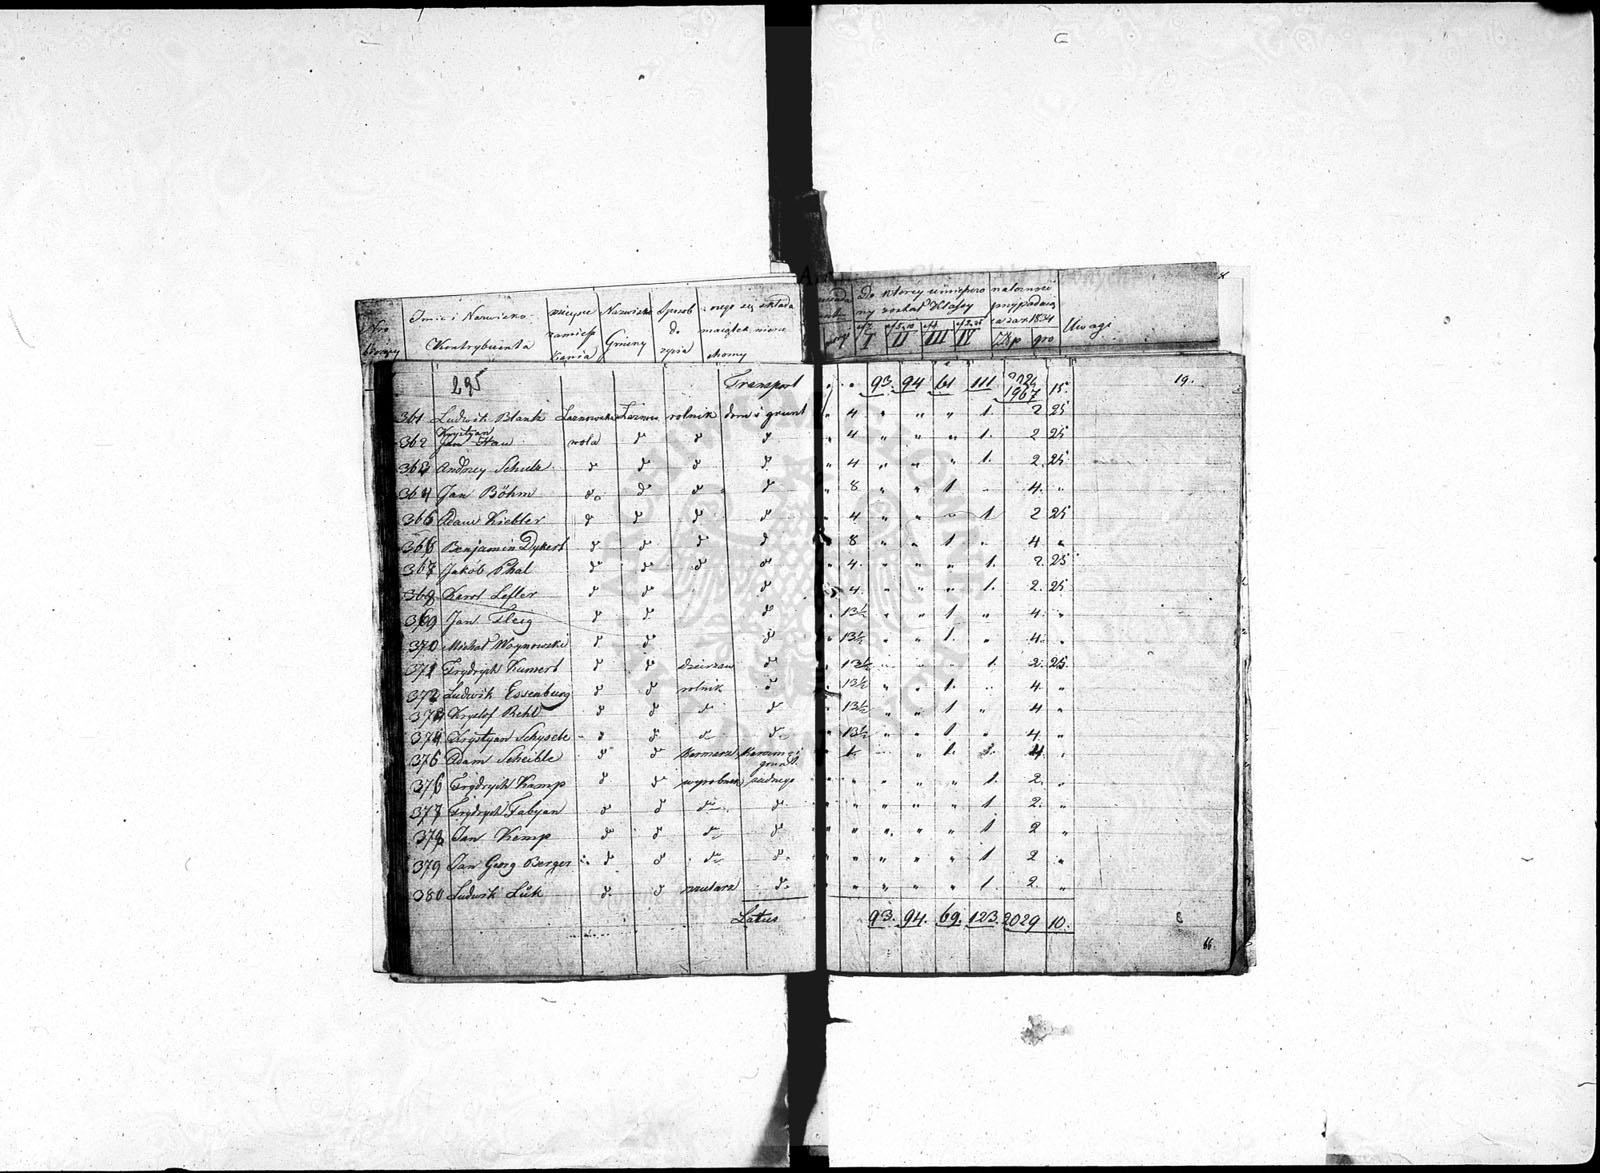 Nro Imie i Nazwisko Kontrybuenta mieysce zamieszkania Nazwisko Gminy Sposob do życia czego się składa maiątek nieruchomy Do ktorey umieszczony został Klassy I II III IV należności przypada za rok 1834 Złp gro Uwagi
295 Transport " " 93. 94 61 111 1967 15. 19.
361 Ludwik Blank Laznowska Laznow rolnik dom i grunt " 4 " " " 1. 2 25
362 Krystyan Jan Hau wola d d d " 4 " " " 1. 2 25
363 Andrzey Schulz d d d d " 4 " " " 1. 2. 25
364 Jan Böhm do d d d " 8 " " 1 " 4. "
365 Adam Kiebler d d d d " 4 " " " 1 2 25
366 Benjamin Dykert d d d d " 8 " " 1 " 4 "
367 Jakob Phal d d d d " 4. " " " 1. 2. 25
368 Karol Lefler d d d " 4. " " " 1. 2. 25
369 Jan Fleig d d d " 13½ " " 1 " 4. "
370 Michał Woynowski d d d " 13½ " " 1. " 4. "
371 Frydrych Kumert d d dzierzaw d " 13½ " " " 1. 2. 25
372 Ludwik Essenburg d d rolnik d " 13½ " " 1. " 4. "
373 Krysztof Rehl d d d d " 13½ " " 1 " 4 "
374 Krystyan Schysele d d d d " 13½ " " 1 " 4. "
375 Adam Scheible d d karczmarz karczma i grunt " 1. 4 "
376 Frydrych Kamp d d wyrobnik żadnego " " " " " 1. 2. "
377 Frydrych Fabyan d d do d " " " " " 1 2. "
378 Jan Kemp d d do d " " " " " 1 2 "
379 Jan Georg Berger d d do d " " " " " 1 2 "
380 Ludwik Lük d d d " " " " " 1. 2. "
Latus 93. 94. 69. 123. 2029 10.
66.